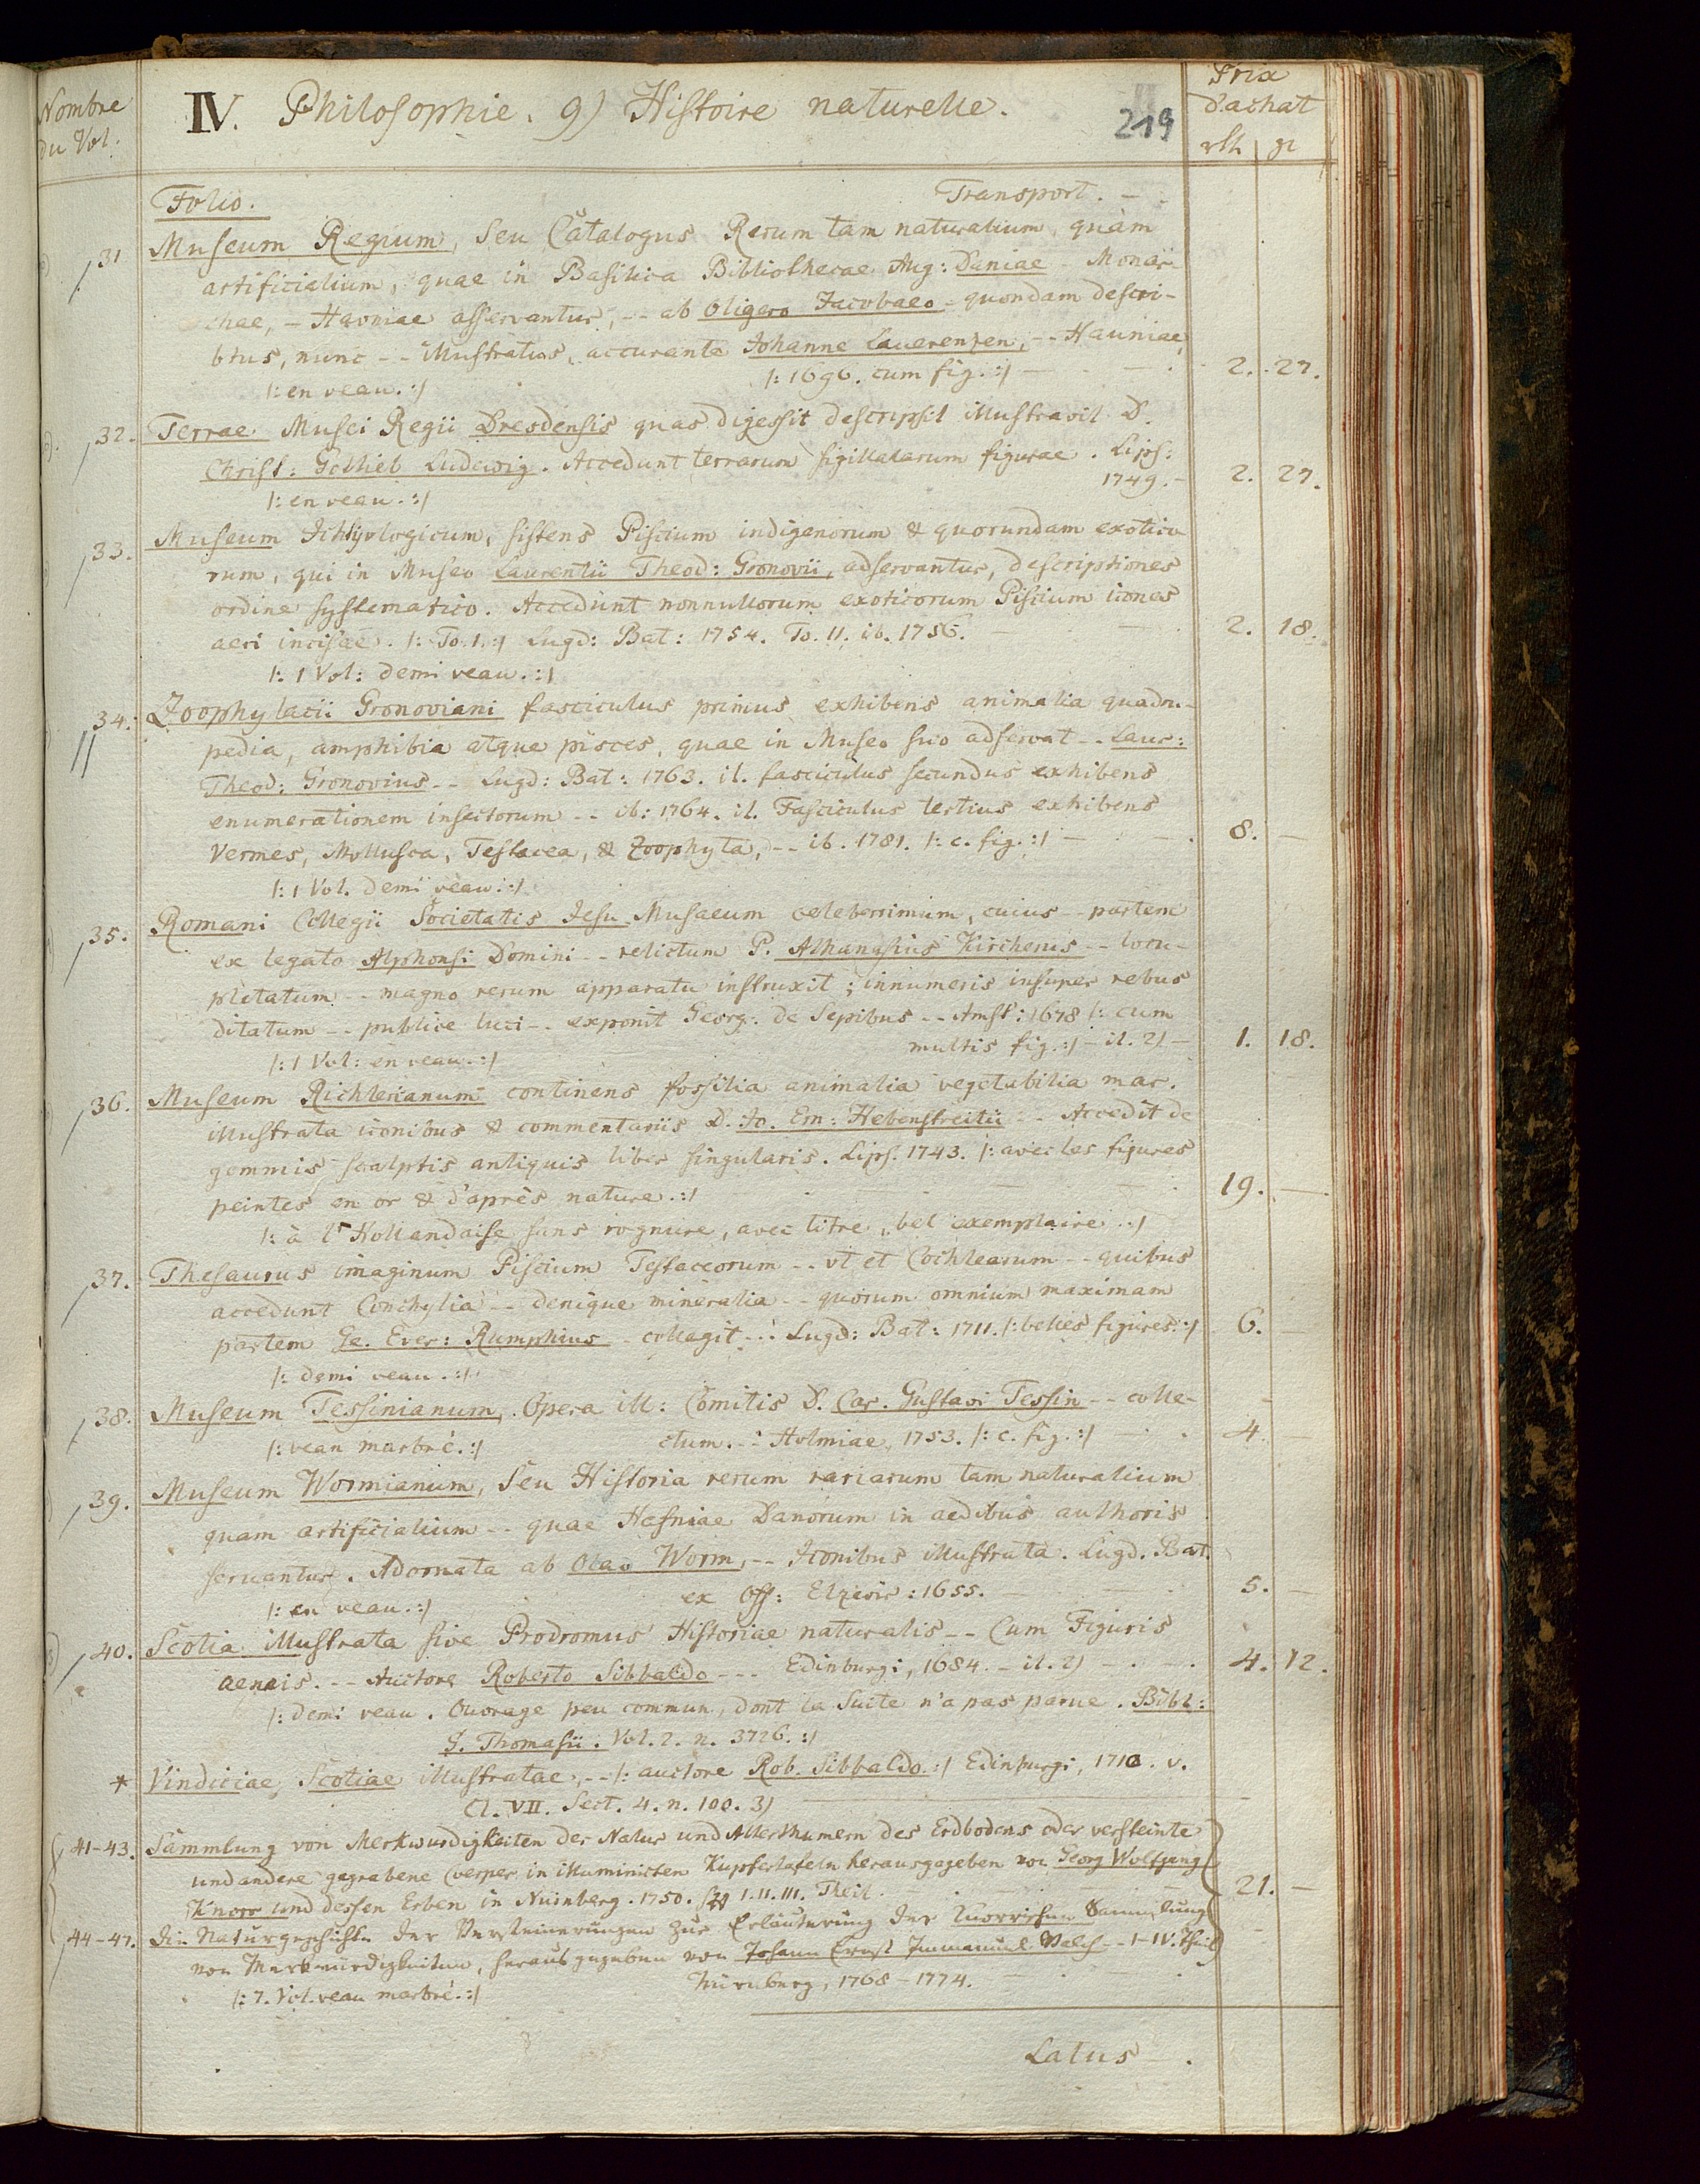 Nombre du Vol.
IV. Philosophie. 9) Histoire naturelle.
219
Prix d'achat
rth | gr
Folio. Transport. - .
31 Museum Regium, Seu Catalogus Rerum tam naturalium, quàm
artificialium, quae in Basilica Bibliothecae Aug: Daniae - Monar-
chae, - Havniae asservantur, -- ab Oligero Jacobaeo - quondam descri-
btus, nunc -- illustratus, accurante Johanne Lauerenzen, -- Hauniae,
|: en veau. :| |: 1696. cum fig. :| - 2. 27.
32. Terrae Musei Regii Dresdensis quas digessit descripsit illustravit D.
Christ: Gottlieb Ludewig. Accedunt terrarum sigillatarum figurae. Lips:
|: en veau. :| 1749. - 2. 27.
33. Museum Ichtyologicum, sistens Piscium indigenorum & quorundam exotico
rum, qui in Museo Laurentii Theod: Gronovii, adservantur, descriptiones
ordine systematico. Accedunt nonnullorum exoticorum Piscium icones
aeri incisae. |: To. 1. :| Lugd: Bat: 1754. To. II. ib. 1756. - 2. 18.
|: 1 Vol: demi veau. :|
34. Zoophylacii Gronoviani fasciculus primus exhibens animalia quadru-
pedia, amphibia atque pisces, quae in Museo suo adservat -- Laur:
Theod: Gronovius -- Lugd: Bat: 1763. it. fasciculus secundus exhibens
enumerationem insectorum -- ib: 1764. it. Fasciculus tertius exhibens
Vermes, Mollusca, Testacea, & Zoophyta, -- ib. 1781. |: c. fig. :| - 8. -
|: 1 Vol. demi veau :|
35. Romani Collegii Societatis Jesu Musaeum celeberrimum, cuius -- partem
ex legato Alphonsi Domini -- relictum P. Athanasius Kircherus -- locu-
pletatum -- magno rerum apparatu instruxit; innumeris insuper rebus
ditatum -- publice luci -- exponit Georg: de Sepibus -- Amst: 1678 |: cum
|: 1 Vol: en veau. :| multis fig. :| - it. 2) - 1. 18.
36. Museum Richterianum continens fossilia animalia vegetabilia mar.
illustrata iconibus & commentariis D. Jo. Ern: Hebenstreitii -- Accedit de
gemmis scalptis antiquis liber singularis. Lips. 1743. |: avec les figures
peintes en or & d'après nature. :| 19. -
|: à l'Hollandaise sans rognure, avec titre, bel exemplaire. :|
37. Thesaurus imaginum Piscium Testaceorum -- ut et Cochlearum -- quibus
accedunt Conchylia -- denique mineralia -- quorum omnium maximam
partem Ge. Ever: Rumphius - collegit -- Lugd: Bat: 1711. |: belles figures. :| 6. -
|: demi veau. :|
38. Museum Tessinianum, Opera ill: Comitis D. Car. Gustavi Tessin -- colle-
|: veau marbré. :| ctum. -- Holmiae, 1753. |: c. fig. :| 4. -
39. Museum Wormianum, Seu Historia rerum rariarum tam naturalium
quam artificialium -- quae Hafniae Danorum in aedibus authoris
servantur. Adornata ab Olao Worm, -- Iconibus illustrata. Lugd. Bat.
|: en veau. :| ex Off: Elzevir: 1655. 5. -
40. Scotia illustrata sive Prodromus Historiae naturalis -- Cum Figuris
aeneis. -- Auctore Roberto Sibbaldo --- Edinburgi, 1684. - it. 2) - 4. 12.
|: demi veau. Ouvrage peu commun, dont la Suite n'a pas parue. Bibl:
G. Thomasii. Vol. 2. n. 3726. :|
* Vindiciae, Scotiae illustratae, -- |: auctore Rob. Sibbaldo. :| Edinburgi, 1710. v.
Cl. VII. Sect. 4. n. 100. 3)
41-43. Sammlung von Merkwurdigkeiten der Natur und Alterthumern des Erdbodens oder versteinte
und andere gegrabene Cörper in illuminirten Kupfertafeln herausgegeben von Georg Wolfgang
Knorr und dessen Erben in Nürnberg. 1750. I. II. III. Theil. 21. -
44-47. Die Naturgeschichte der Versteinerungen zur Erläuterung der Knorrischen Sammlung
von Merkwürdigkeiten, herausgegeben von Johann Ernst Immanuel Walch -- I-IV. Theil
|: 7. Vol. veau marbré. :| Nürnberg, 1768-1774.
Latus - .